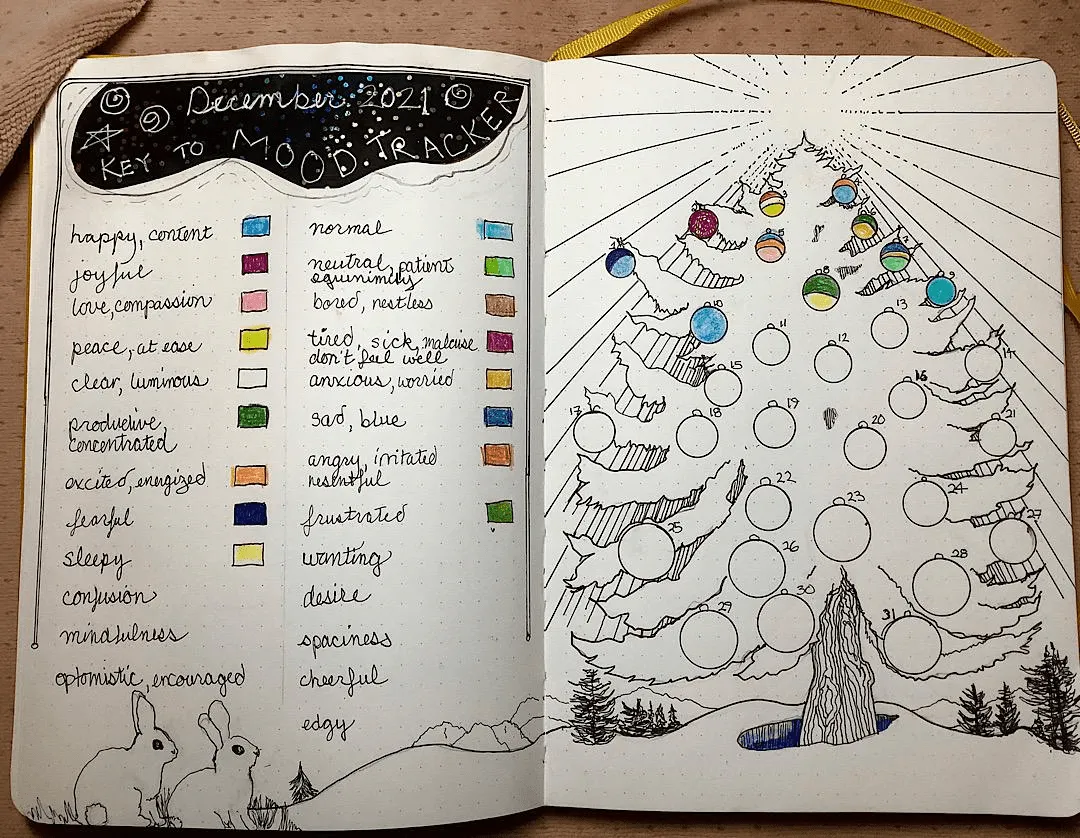 December 2021
KEY TO MOOD TRACKER
happy, content
joyful
love, compassion
peace, at ease
clear, luminous
productive,
concentrated
excited, energized
fearful
sleepy
confusion
mindfulness
optomistic, encouraged
normal
neutral, patient
equinimity
bored, restless
tired, sick, malaise
don't feel well
anxious, worried
sad, blue
angry, irritated
resentful
frustrated
wanting
desire
spaciness
cheerful
edgy
5
6
7
8
9
10
11
12
13
14
15
16
17
18
19
20
21
22
23
24
25
26
27
28
29
30
31